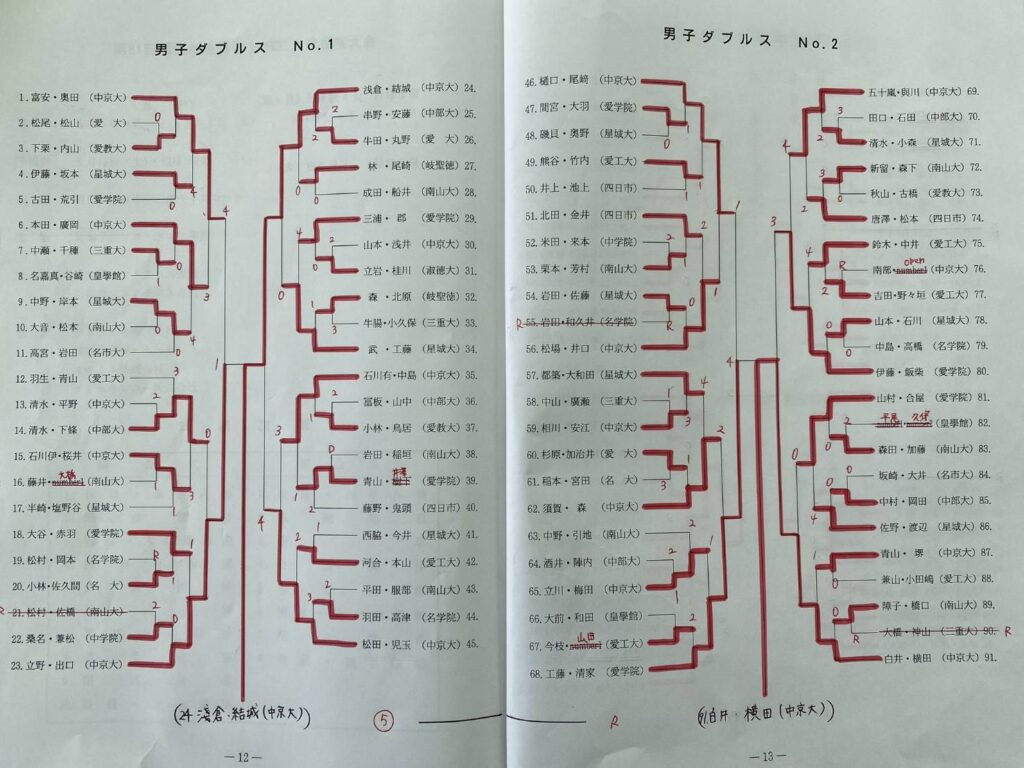 男子ダブルス No.1
1.富安・奥田 (中京大)
2.松尾・松山 (愛 大)
3.下栗・内山 (愛教大)
4.伊藤・坂本 (星城大)
5.古田・荒引 (愛学院)
6.本田・廣岡 (中京大)
7.中瀬・千種 (三重大)
8.名嘉真・谷崎 (皇學館)
9.中野・岸本 (星城大)
10.大音・松本 (南山大)
11.高宮・岩田 (名市大)
12.羽生・青山 (愛工大)
13.清水・平野 (中京大)
14.清水・下條 (中部大)
15.石川伊・桜井 (中京大)
大橋
16.藤井・number1 (南山大)
17.半崎・塩野谷 (星城大)
18.大谷・赤羽 (愛学院)
19.松村・岡本 (名学院)
20.小林・佐久間 (名 大)
R 21.松村・佐橋 (南山大)
22.桑名・兼松 (中学院)
23.立野・出口 (中京大)
浅倉・結城 (中京大) 24.
串野・安藤 (中部大) 25.
牛田・丸野 (愛 大) 26.
林 ・尾崎 (岐聖徳) 27.
成田・船井 (南山大) 28.
三浦・ 郡 (愛学院) 29.
山本・浅井 (中京大) 30.
立岩・桂川 (淑徳大) 31.
森 ・北原 (岐聖徳) 32.
牛腸・小久保 (三重大) 33.
武 ・工藤 (星城大) 34.
石川有・中島 (中京大) 35.
冨板・山中 (中部大) 36.
小林・鳥居 (愛教大) 37.
岩田・稲垣 (南山大) 38.
青山・ (愛学院) 39.
藤野・鬼頭 (四日市) 40.
西脇・今井 (星城大) 41.
河合・本山 (愛工大) 42.
平田・服部 (南山大) 43.
羽田・高津 (名学院) 44.
松田・児玉 (中京大) 45.
(24 浅倉・結城(中京大))
⑤
— 12 —
男子ダブルス No.2
46.樋口・尾﨑 (中京大)
47.間宮・大羽 (愛学院)
48.磯貝・奥野 (星城大)
49.熊谷・竹内 (愛工大)
50.井上・池上 (四日市)
51.北田・金井 (四日市)
52.米田・来本 (中学院)
53.栗本・芳村 (南山大)
54.岩田・佐藤 (星城大)
R 55.岩田・和久井 (名学院)
56.松場・井口 (中京大)
57.都築・大和田 (星城大)
58.中山・廣瀬 (三重大)
59.相川・安江 (中京大)
60.杉原・加治井 (愛 大)
61.稲本・宮田 (名 大)
62.須賀・ 森 (中京大)
63.中野・引地 (南山大)
64.酒井・陣内 (中部大)
65.立川・梅田 (中京大)
66.大前・和田 (皇學館)
山田
67.今枝・number1 (愛工大)
68.工藤・清家 (愛学院)
五十嵐・與川 (中京大) 69.
田口・石田 (中部大) 70.
清水・小森 (星城大) 71.
新留・森下 (南山大) 72.
秋山・古橋 (愛教大) 73.
唐澤・松本 (四日市) 74.
鈴木・中井 (愛工大) 75.
open
南部・number1 (中京大) 76.
吉田・野々垣 (愛工大) 77.
山本・石川 (星城大) 78.
中島・高橋 (名学院) 79.
伊藤・飯柴 (愛学院) 80.
山村・合屋 (愛学院) 81.
(皇學館) 82.
森田・加藤 (南山大) 83.
坂崎・大井 (名市大) 84.
中村・岡田 (中部大) 85.
佐野・渡辺 (星城大) 86.
青山・ 堺 (中京大) 87.
兼山・小田嶋 (愛工大) 88.
障子・橋口 (南山大) 89.
大橋・神山 (三重大) 90. R
白井・横田 (中京大) 91.
R
(91 白井・横田(中京大))
— 13 —